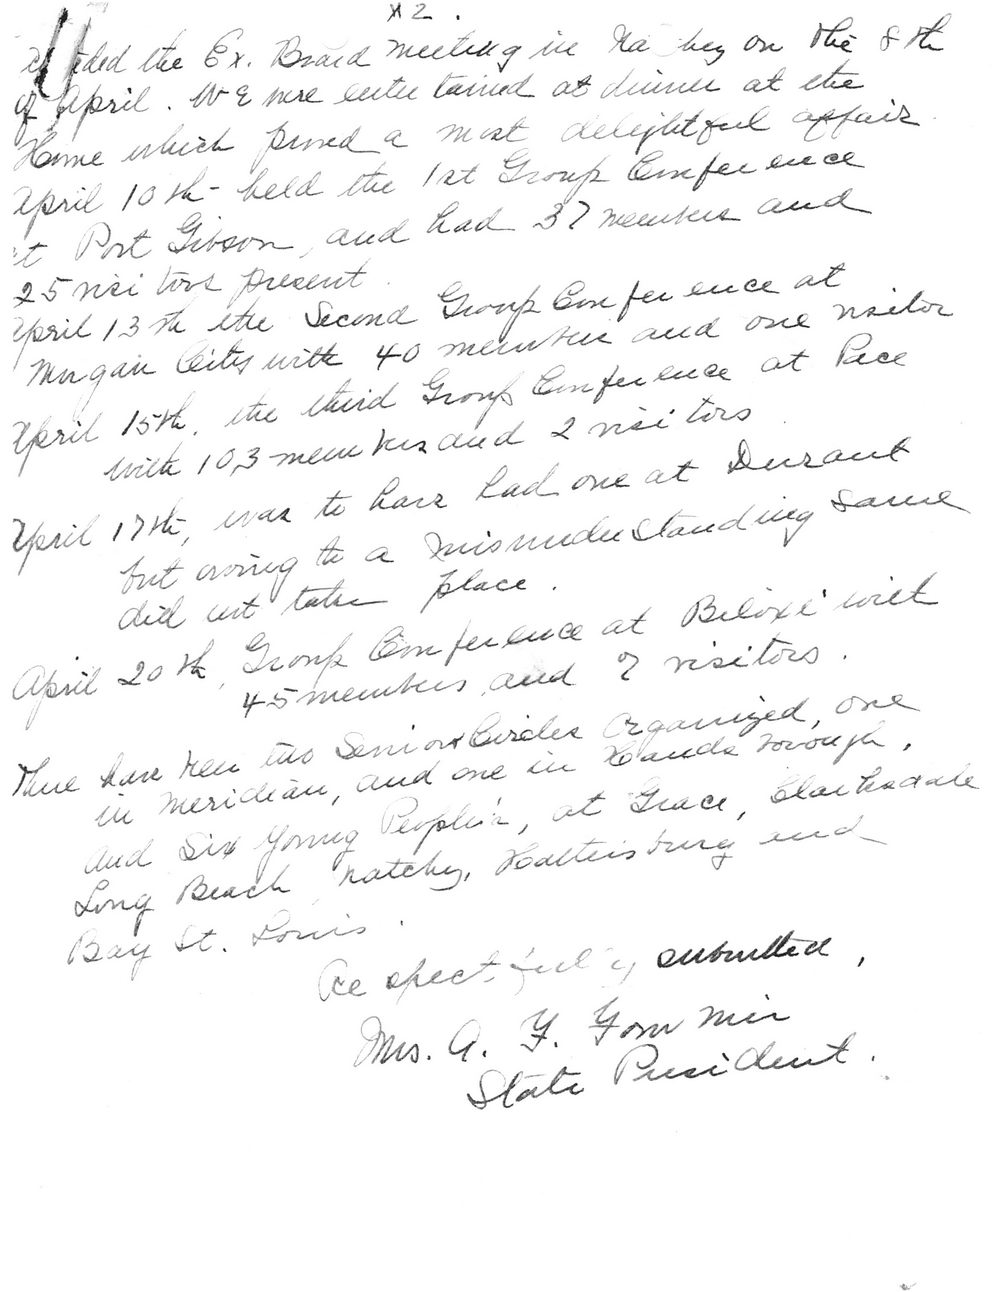 #2.
attended the Ex. Board meeting in Natchez on the 8th
of April. We were entertained at dinner at the
Home which proved a most delightful affair.
April 10th - held the 1st Group Conference
at Port Gibson, and had 37 members and
25 visitors present.
April 13th the Second Group Conference at
Morgan City with 40 members and one visitor
April 15th, the third Group Conference at Pace
with 103 members and 2 visitors
April 17th, was to have had one at Durant
but owing to a misunderstanding same
did not take place.
April 20th, Group Conference at Biloxi with
45 members and 7 visitors.
There have been two Senior Circles organized, one
in Meridian, and one in Handsborough,
and Six Young People's, at Grace, Clarksdale
Long Beach, Natchez, Hattiesburg and
Bay St. Louis.
Respectfully submitted,
Mrs. A. F.
State President.